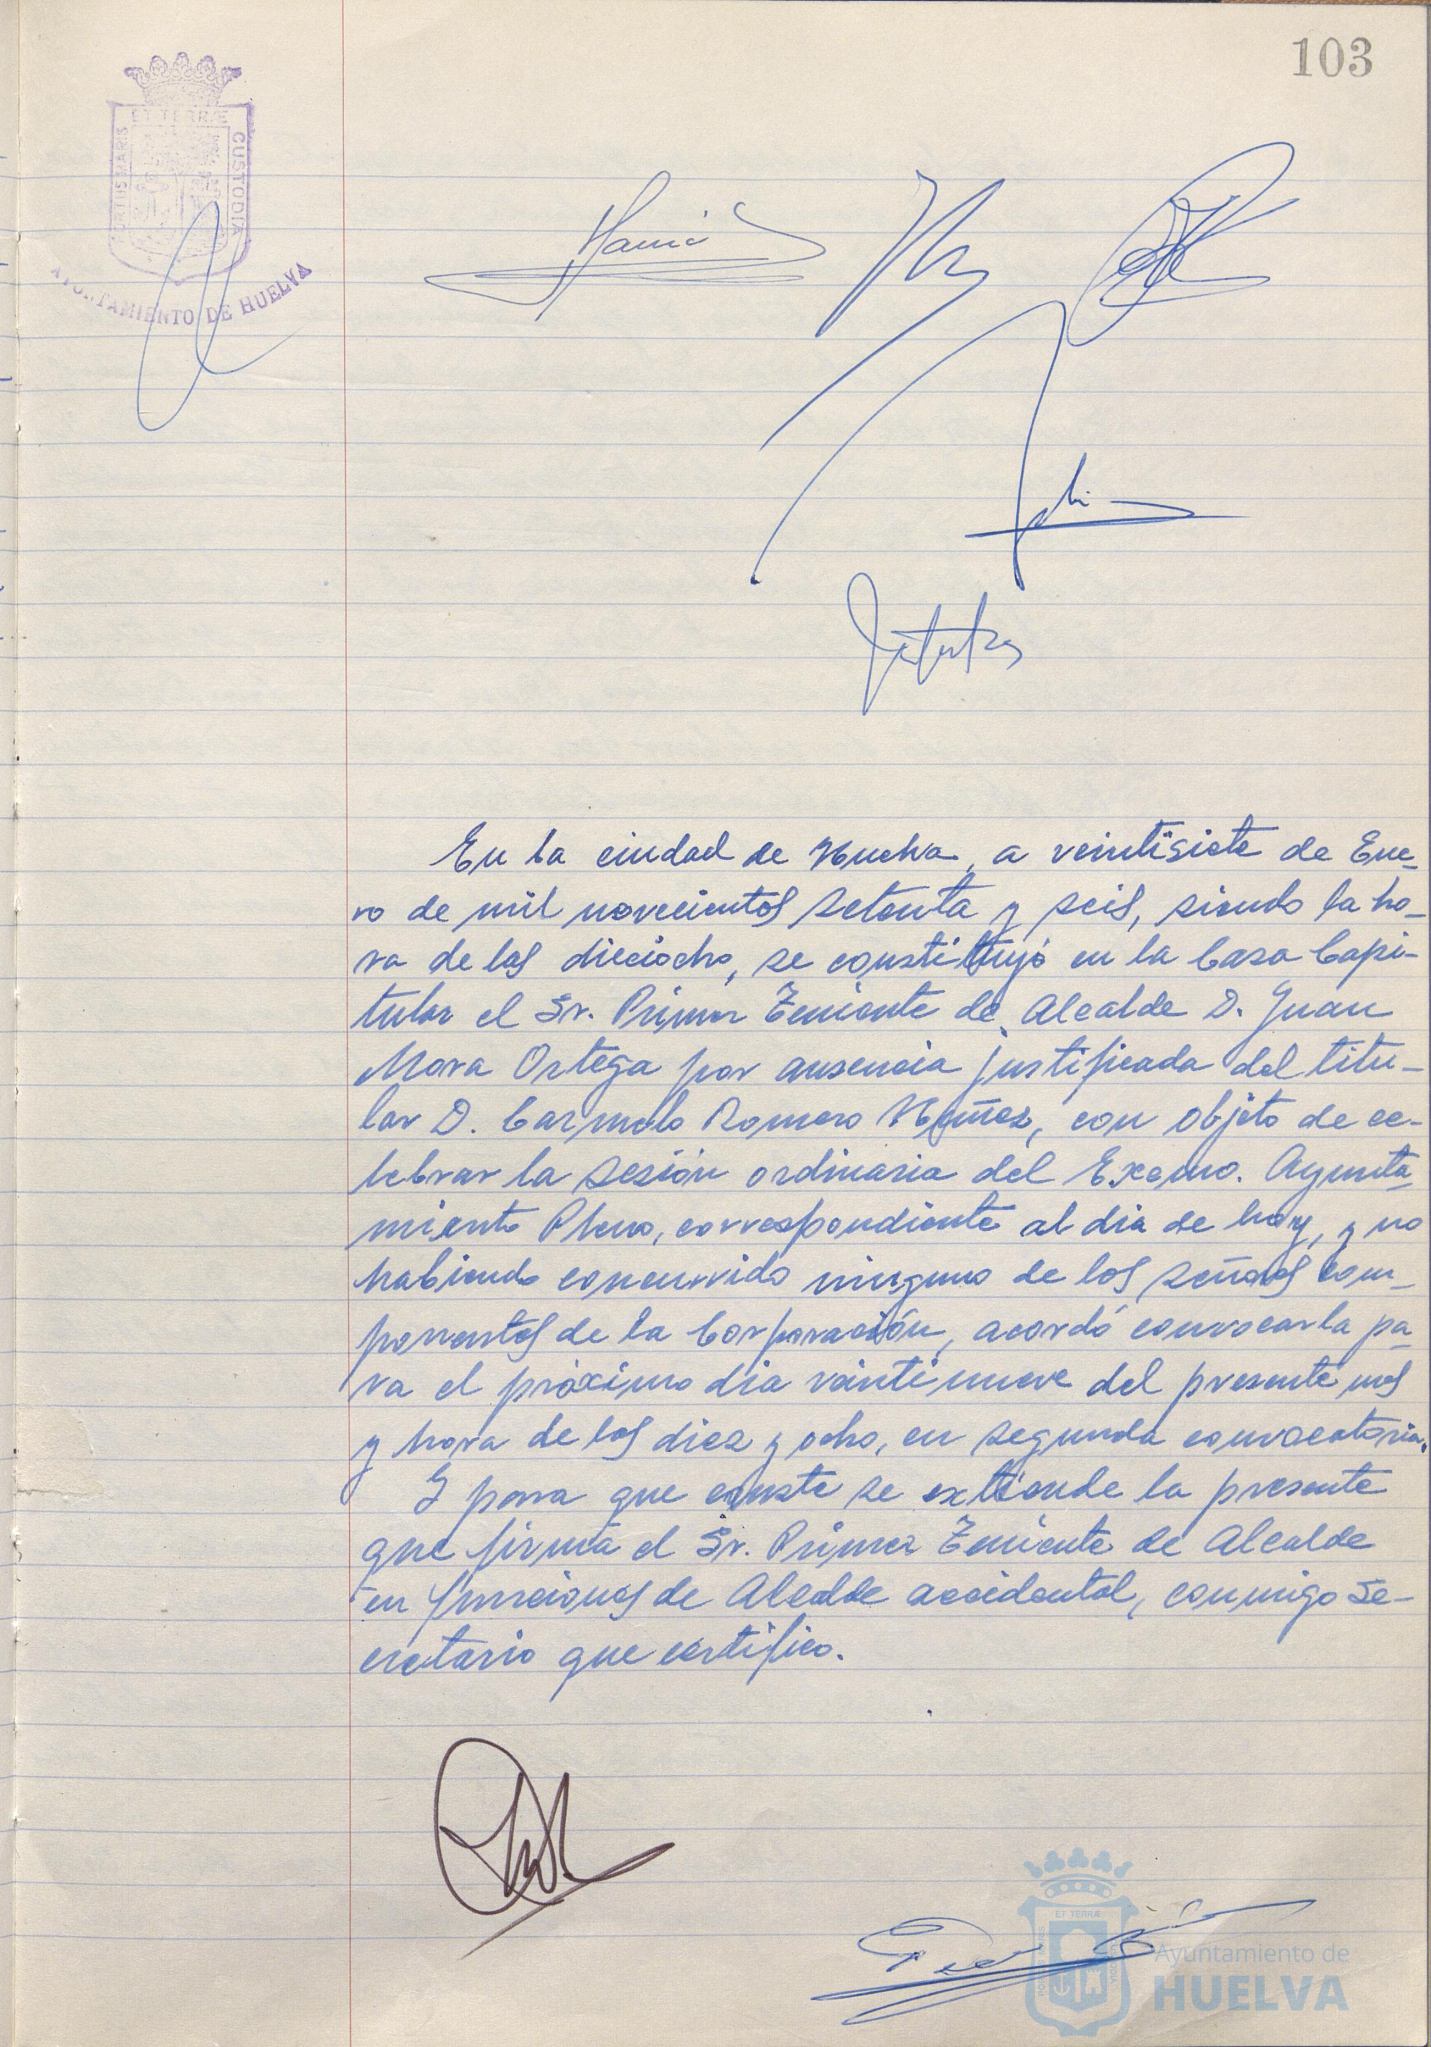 103
ET TERRÆ
PORTUS MARIS
CUSTODIA
AYUNTAMIENTO DE HUELVA
En la ciudad de Huelva, a veintisiete de Ene-
ro de mil novecientos setenta y seis, siendo la ho-
ra de las dieciocho, se constituyó en la Casa Capi-
tular el Sr. Primer Teniente de Alcalde D. Juan
Mora Ortega por ausencia justificada del titu-
lar D. Carmelo Romero Núñez, con objeto de ce-
lebrar la sesión ordinaria del Excmo. Ayunta-
miento Pleno, correspondiente al dia de hoy, y no
habiendo concurrido ninguno de los señores com-
ponentes de la Corporación, acordó convocarla pa-
ra el próximo dia veintinueve del presente mes
y hora de las diez y ocho, en segunda convocatoria.
Y para que conste se extiende la presente
que firma el Sr. Primer Teniente de Alcalde
en funciones de Alcalde accidental, conmigo Se-
cretario que certifico.
ET TERRÆ
Ayuntamiento de
HUELVA